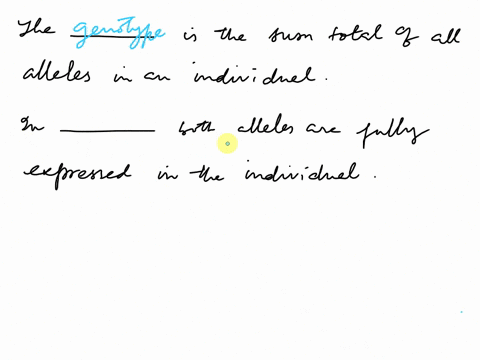 The genotype is the sum total of all
alleles in an individuel.
In ________ both alleles are fully
expressed in the individuel.